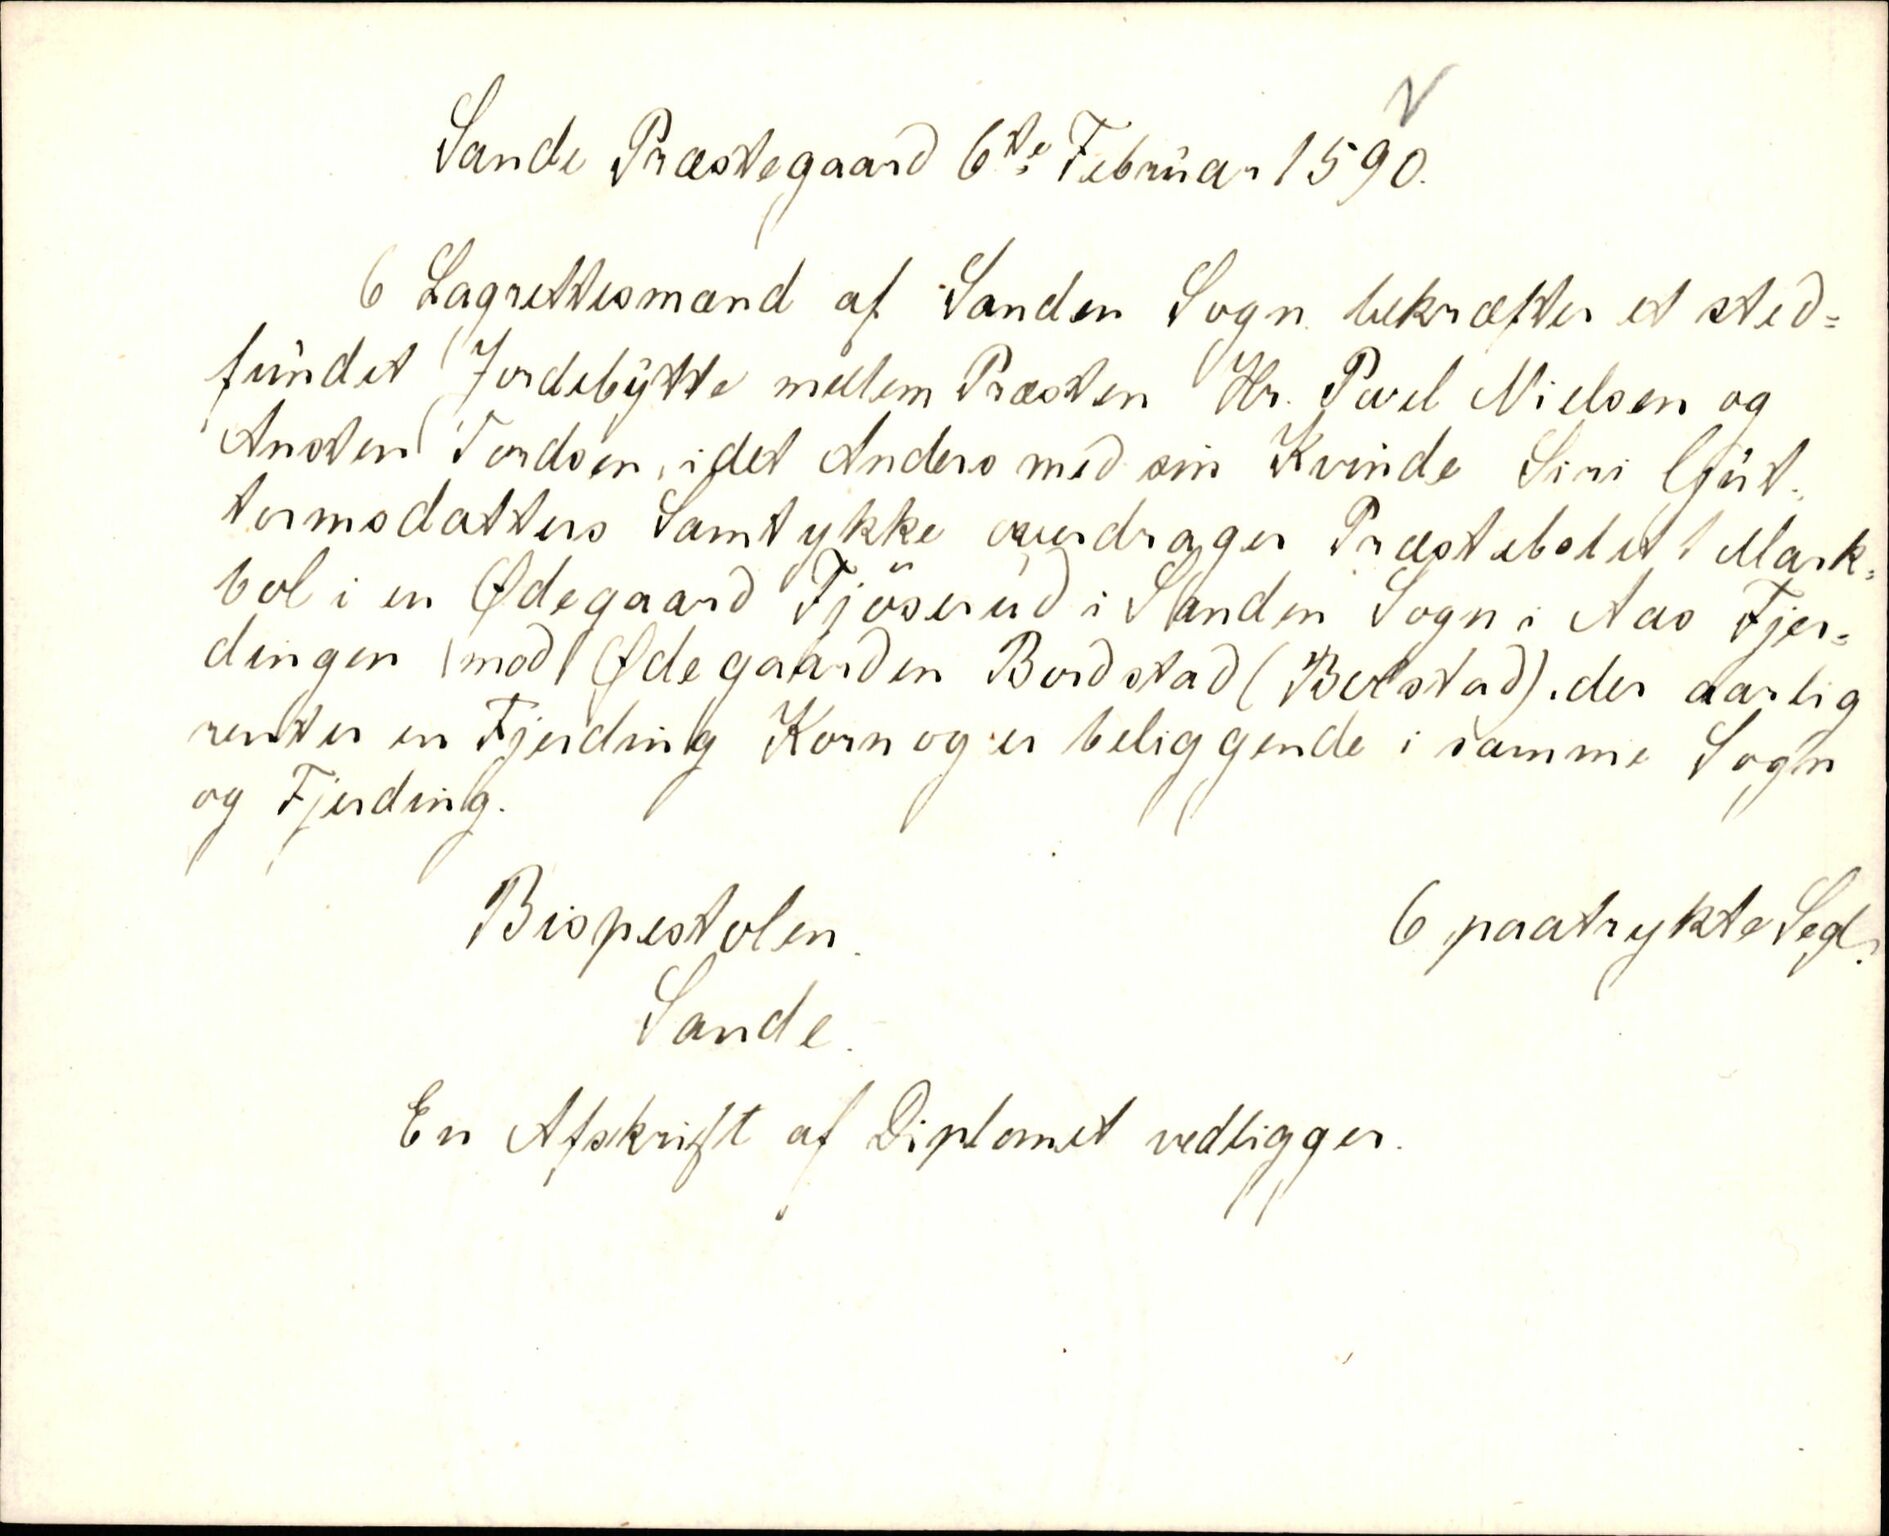 Sande Præstegaard 6te Februar 1590.
6 Lagrettesmænd af Sanden Sogn bekræfter et sted=
fundet Jordebytte mellem Præsten Hr. Povel Nielsen og
Ansten Tordsen, idet Anders med sin Kvinde Siri Gut-
tormsdatters Samtykke overdrager Præstebolet 1 Mark=
bol i en Ødegaard Fjöserud i Sanden Sogn i Aas Fjer=
dingen mod Ødegaarden Bordstad (Bolstad), der aarlig
renter en Fjerding Korn og er beliggende i samme Sogn
og Fjerding.
Bispestolen.
6 paatrykte Segl.
Sande.
En Afskrift af Diplomet vedligger.